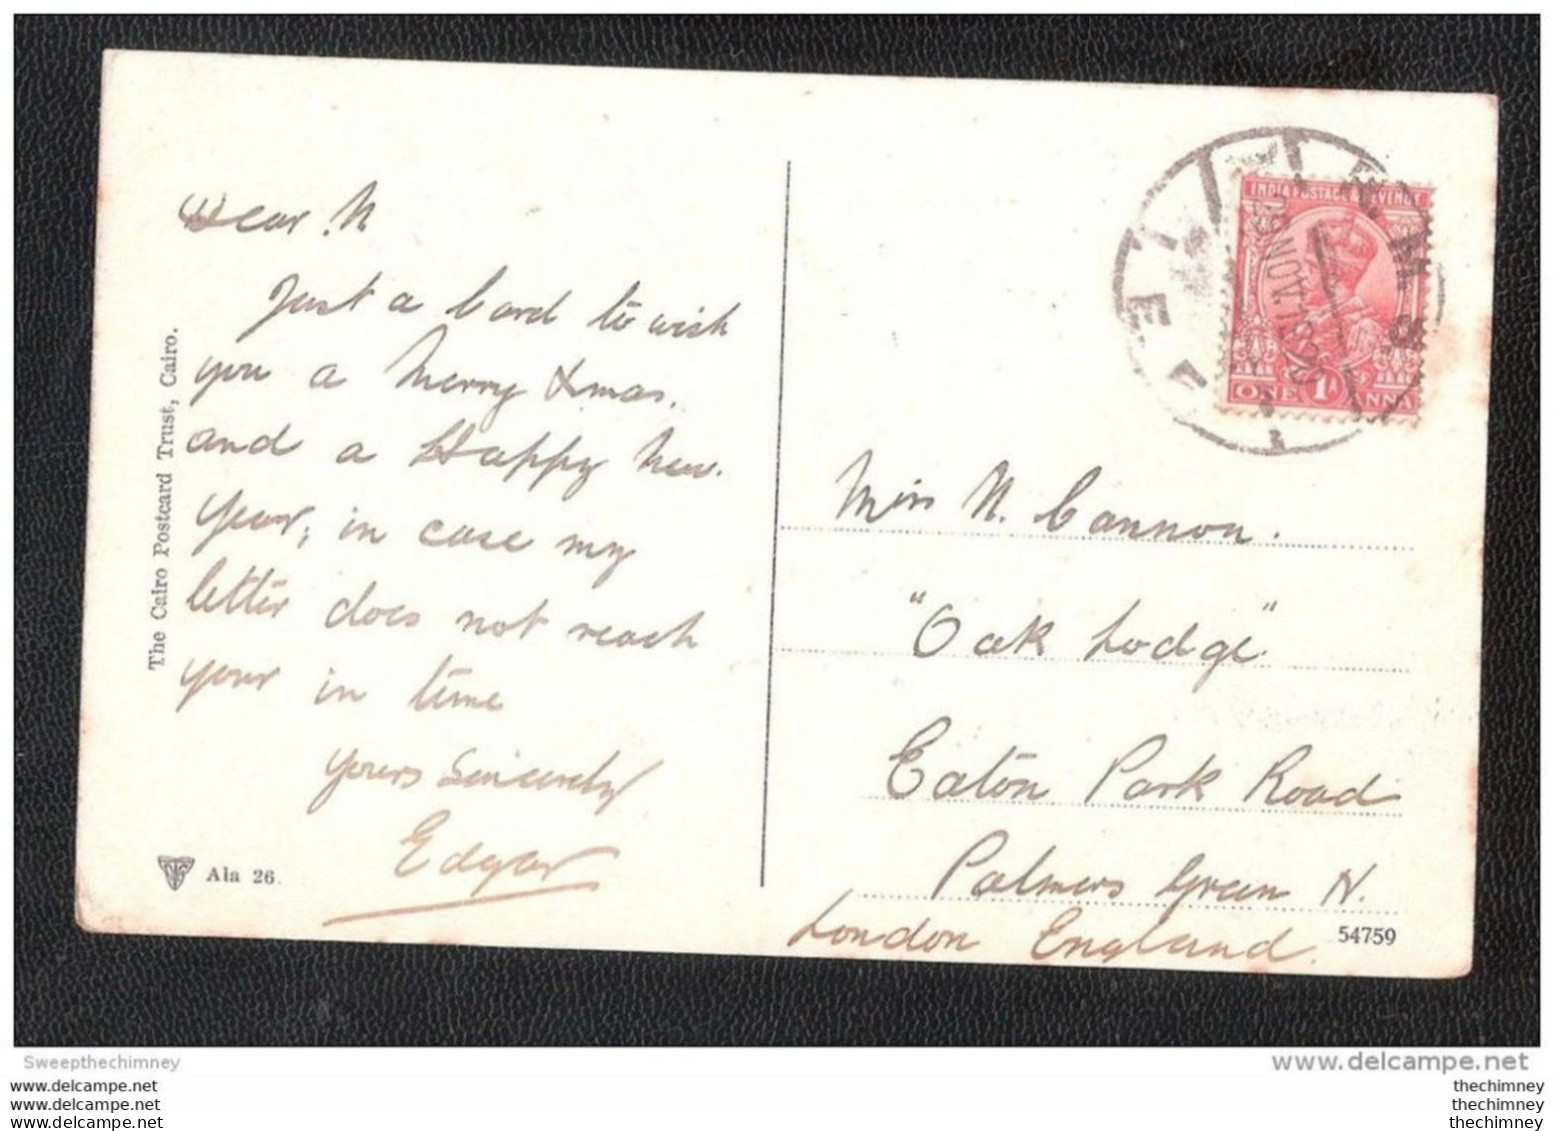 Dear N
Just a Card to wish
you a Merry Xmas.
and a Happy New.
Year, in case my
letter does not reach
your in time
Yours Sincerely
Edgar
The Cairo Postcard Trust, Cairo.
Ala 26.
INDIA POSTAGE & REVENUE
ONE 1A ANNA
Miss N. Cannon.
"Oak Lodge"
Eaton Park Road
Palmers Green N.
London England.
54759
Sweepthechimney
www.delcampe.net
www.delcampe.net
www.delcampe.net
www.delcampe.net
thechimney
thechimney
thechimney